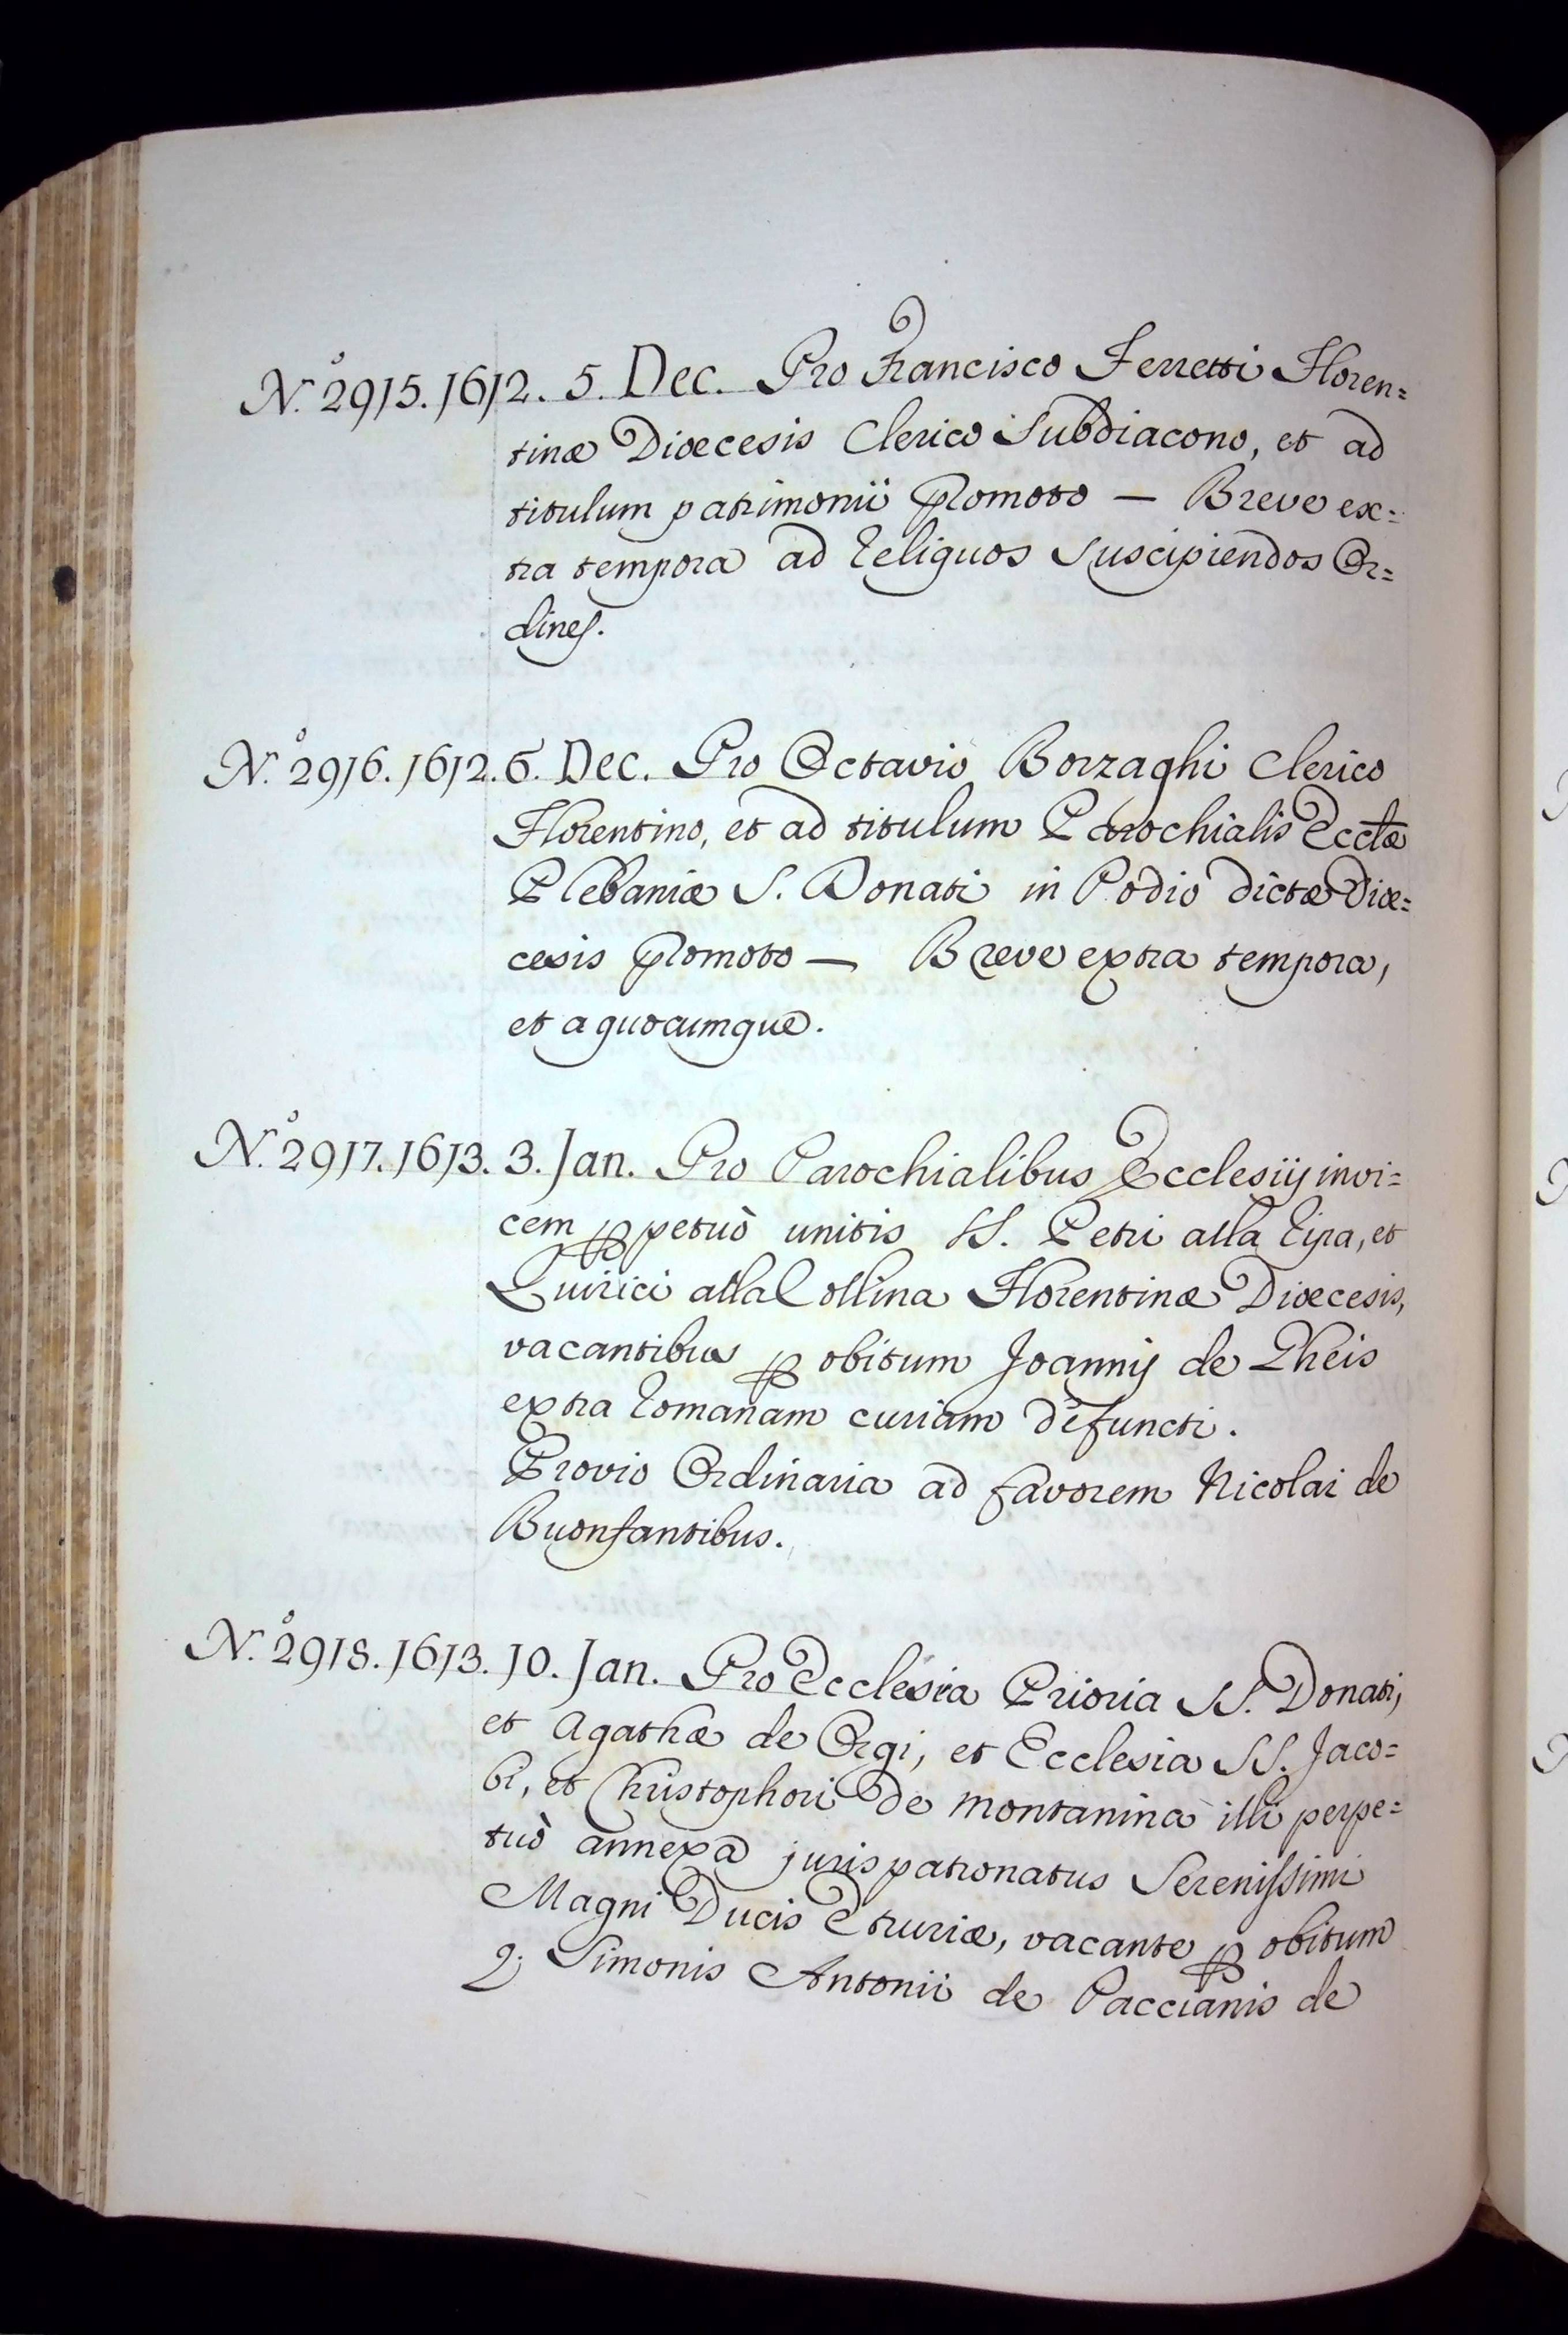 N.º 2915. 1612. 5. Dec. Pro Francisco Ferretti Floren=
tinæ Diœcesis Clerico Subdiacono, et ad
titulum patrimonii promoto — Breve ex=
tra tempora ad reliquos suscipiendos Or=
dines.
N.º 2916. 1612. 6. Dec. Pro Octavio Borzaghi Clerico
Florentino, et ad titulum Parochialis Ecctæ
Plebaniæ S. Donati in Podio dictæ Diœ=
cesis promoto — Breve extra tempora,
et a quocumque.
N.º 2917. 1613. 3. Jan. Pro Parochialibus Ecclesiis invi=
cem ꝑpetuò unitis SS. Petri alla Ripa, et
Quirici alla Collina Florentinæ Diœcesis,
vacantibus ꝑ obitum Joannis de Rheis
extra Romanam curiam defuncti.
Provio Ordinaria ad favorem Nicolai de
Buonfantibus.
N.º 2918. 1613. 10. Jan. Pro Ecclesia Prioria SS. Donati,
et Agathæ de Orgi, et Ecclesia SS. Jaco=
bi, et Christophori de Montanina illi perpe=
tuò annexa juris patronatus Serenissimi
Magni Ducis Etruriæ, vacante ꝑ obitum
q; Simonis Antonii de Paccianis de